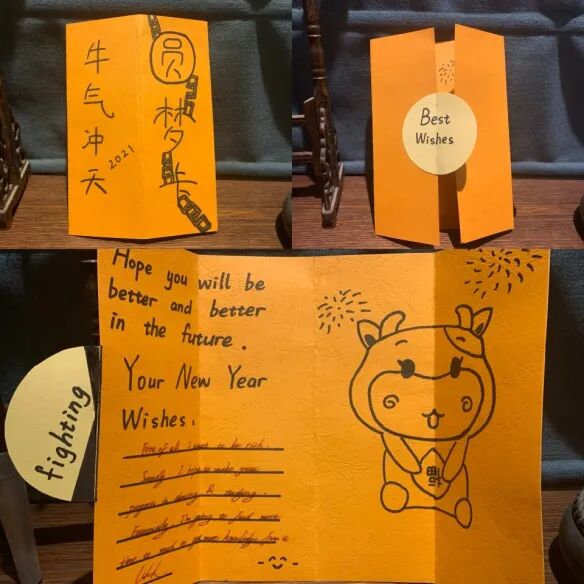 牛气冲天
2021
圆梦
Best
Wishes
fighting
Hope you will be
better and better
in the future.
Your New Year
Wishes.
First of all I want to be rich.
I hope to make great
progress in dancing &
I'm going to find more
time to read to get more knowledge from
福